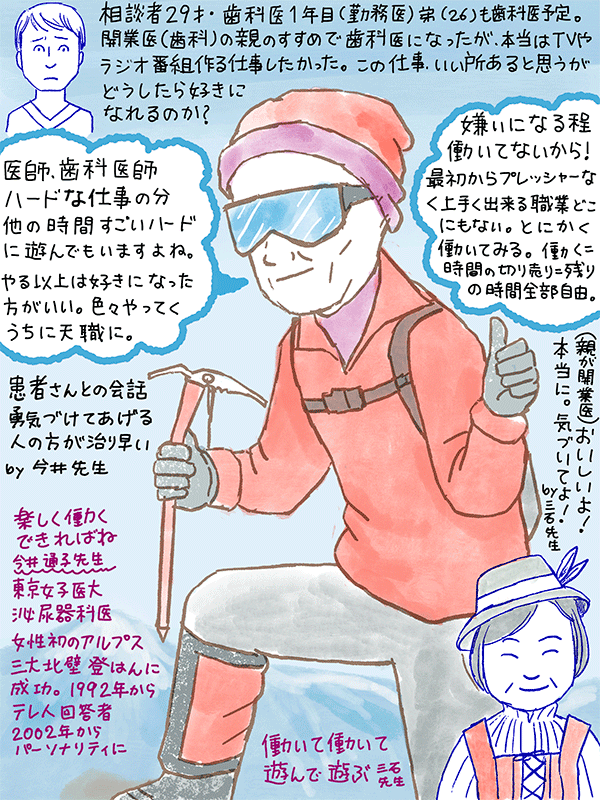 相談者29才・歯科医1年目(勤務医)弟(26)も歯科医予定。
開業医(歯科)の親のすすめで歯科医になったが、本当はTVや
ラジオ番組作る仕事したかった。この仕事、いい所あると思うが
どうしたら好きに
なれるのか?
医師、歯科医師
ハードな仕事の分
他の時間すごいハード
に遊んでもいますよね。
やる以上は好きになった
方がいい。色々やってく
うちに天職に。
嫌いになる程
働いてないから!
最初からプレッシャーな
く上手く出来る職業どこ
にもない。とにかく
働いてみる。働く=
時間の切り売り=残り
の時間全部自由。
(親が開業医)おいしいよ!
本当に。気づいてよ!
by三石先生
患者さんとの会話
勇気づけてあげる
人の方が治り早い
by 今井先生
楽しく働く
できればね
今井通子先生
東京女子医大
泌尿器科医
女性初のアルプス
三大北壁登はんに
成功。1992年から
テレ人回答者
2002年から
パーソナリティに
働いて働いて
遊んで遊ぶ 三石先生